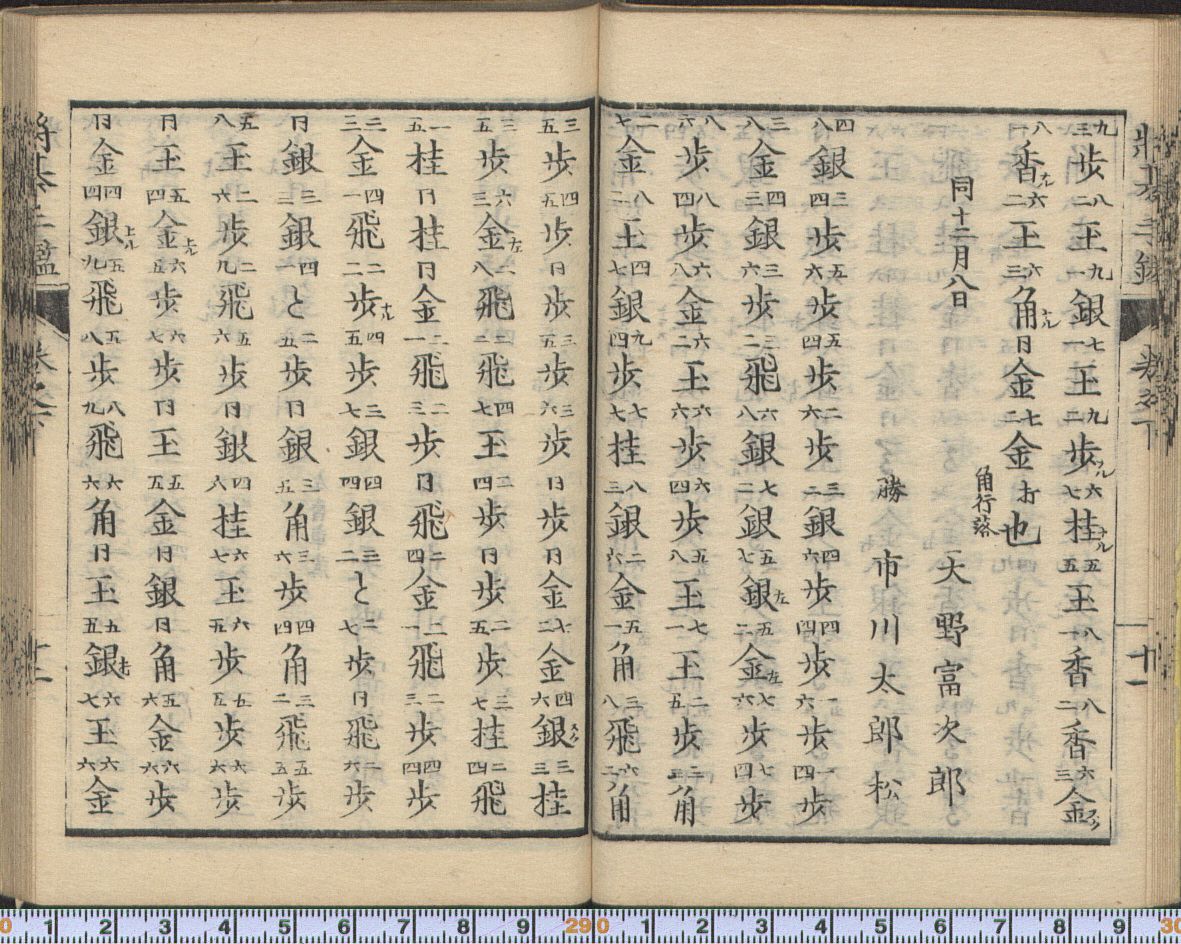 将棊手鑑 巻之下 十一
九三歩八二王九一銀七一王九二歩ナル六七桂ナル五五王八一香八二香六三金ウツ
八香ナル六二王六三角ナル同金七二金打也
同十二月八日 角行落 天野富次郎
勝 市川太郎松
四八銀三四歩五六歩五四歩二六歩三二銀四六歩四四歩一六歩一四歩
三八金四三銀三六歩三二飛六八銀七二銀五七銀左五二金左七六歩七四歩
八六歩八四歩六八金六二王六六歩六四歩五八王七一王二五歩三三角
二七金八二王四七銀九四歩七七桂八三銀二六金五一角三八飛六二角
三五歩四五歩同歩三五歩三六歩同歩同金七二金四六銀三三桂
三五歩六三金左二八飛四七王二四歩同歩二五歩三七桂二四飛
一五桂同桂同金二一飛二三歩同飛二四金二一飛二三歩四四歩
二三金四一飛二二歩ナル四五歩三七銀四四銀三二と二七歩同飛二六歩
同銀三三銀四一と二五歩同銀三五角三六歩四四角三二飛五五歩
五八王二六歩二九飛五六歩同銀四六桂六七王六五歩五五歩六六歩
同王五四金上ル六五歩六七歩同王五五金同銀同角五六金六六歩
同金四四銀上ル五九飛五八歩八九飛六六角同王五五銀打六七王六六金
将棊手鑑 巻之下 十二